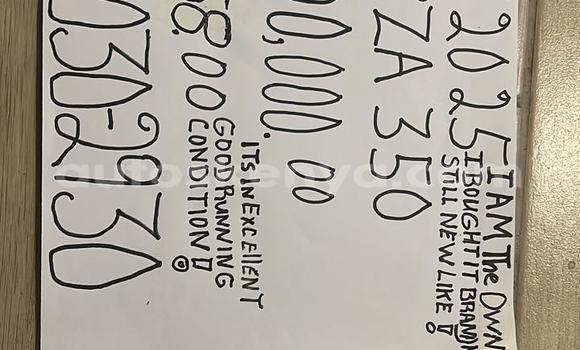 2025
I AM The OWN
I BOUGHT IT BRAND
STILL NEW LIKE !
ZA 350
0,000. 00
800
ITS IN EXCELLENT
GOOD RUNNING
CONDITION !
030-2930